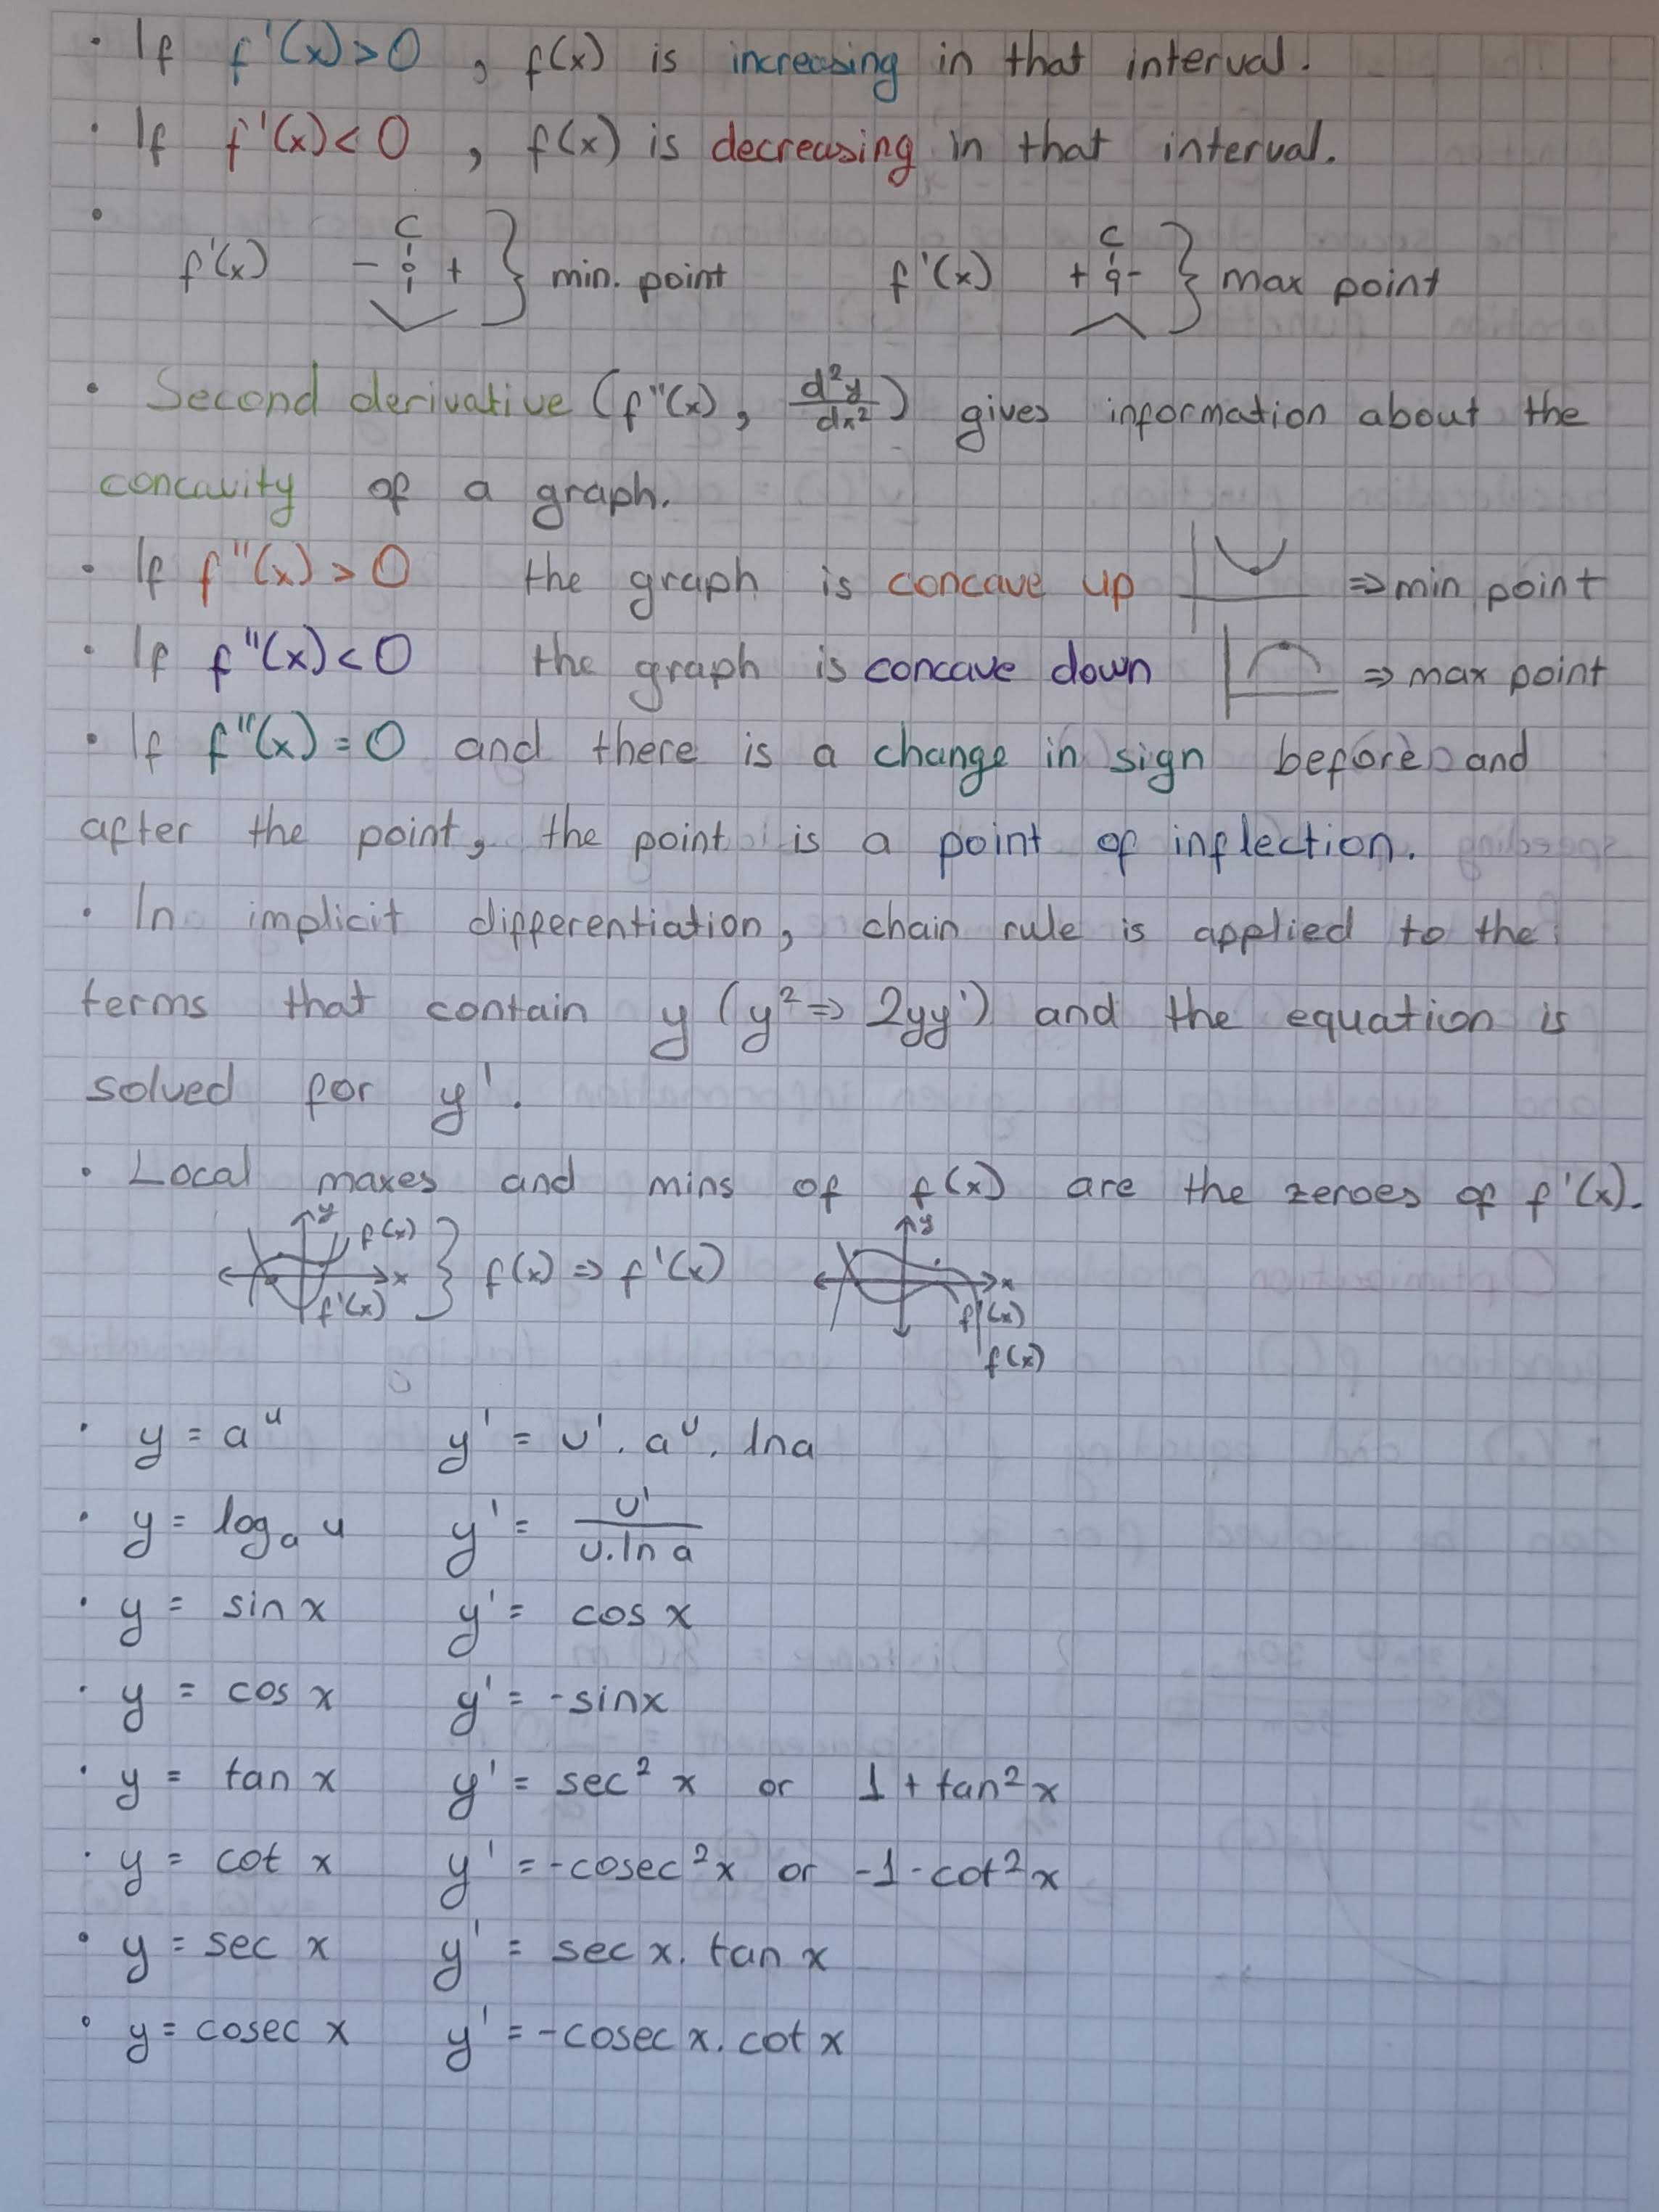 • If f'(x)>0 , f(x) is increasing in that interval.
• If f'(x)<0 , f(x) is decreasing in that interval.
• f'(x) - c 0 + } min. point f'(x) + c 0 - } max point
• Second derivative (f''(x), d²y/dx²) gives information about the
concavity of a graph.
• If f''(x) > 0 the graph is concave up ⇒ min point
• If f''(x) < 0 the graph is concave down ⇒ max point
• If f''(x) = 0 and there is a change in sign before and
after the point, the point is a point of inflection.
• In implicit differentiation, chain rule is applied to the
terms that contain y (y² ⇒ 2yy') and the equation is
solved for y'.
• Local maxes and mins of f(x) are the zeroes of f'(x).
y f(x) x f'(x) } f(x) ⇒ f'(x) y x f'(x) f(x)
• y = a^u y' = u' . a^u . ln a
• y = logₐ u y' = u'/(u . ln a)
• y = sin x y' = cos x
• y = cos x y' = -sinx
• y = tan x y' = sec² x or 1 + tan² x
• y = cot x y' = -cosec² x or -1 - cot² x
• y = sec x y' = sec x . tan x
• y = cosec x y' = -cosec x . cot x